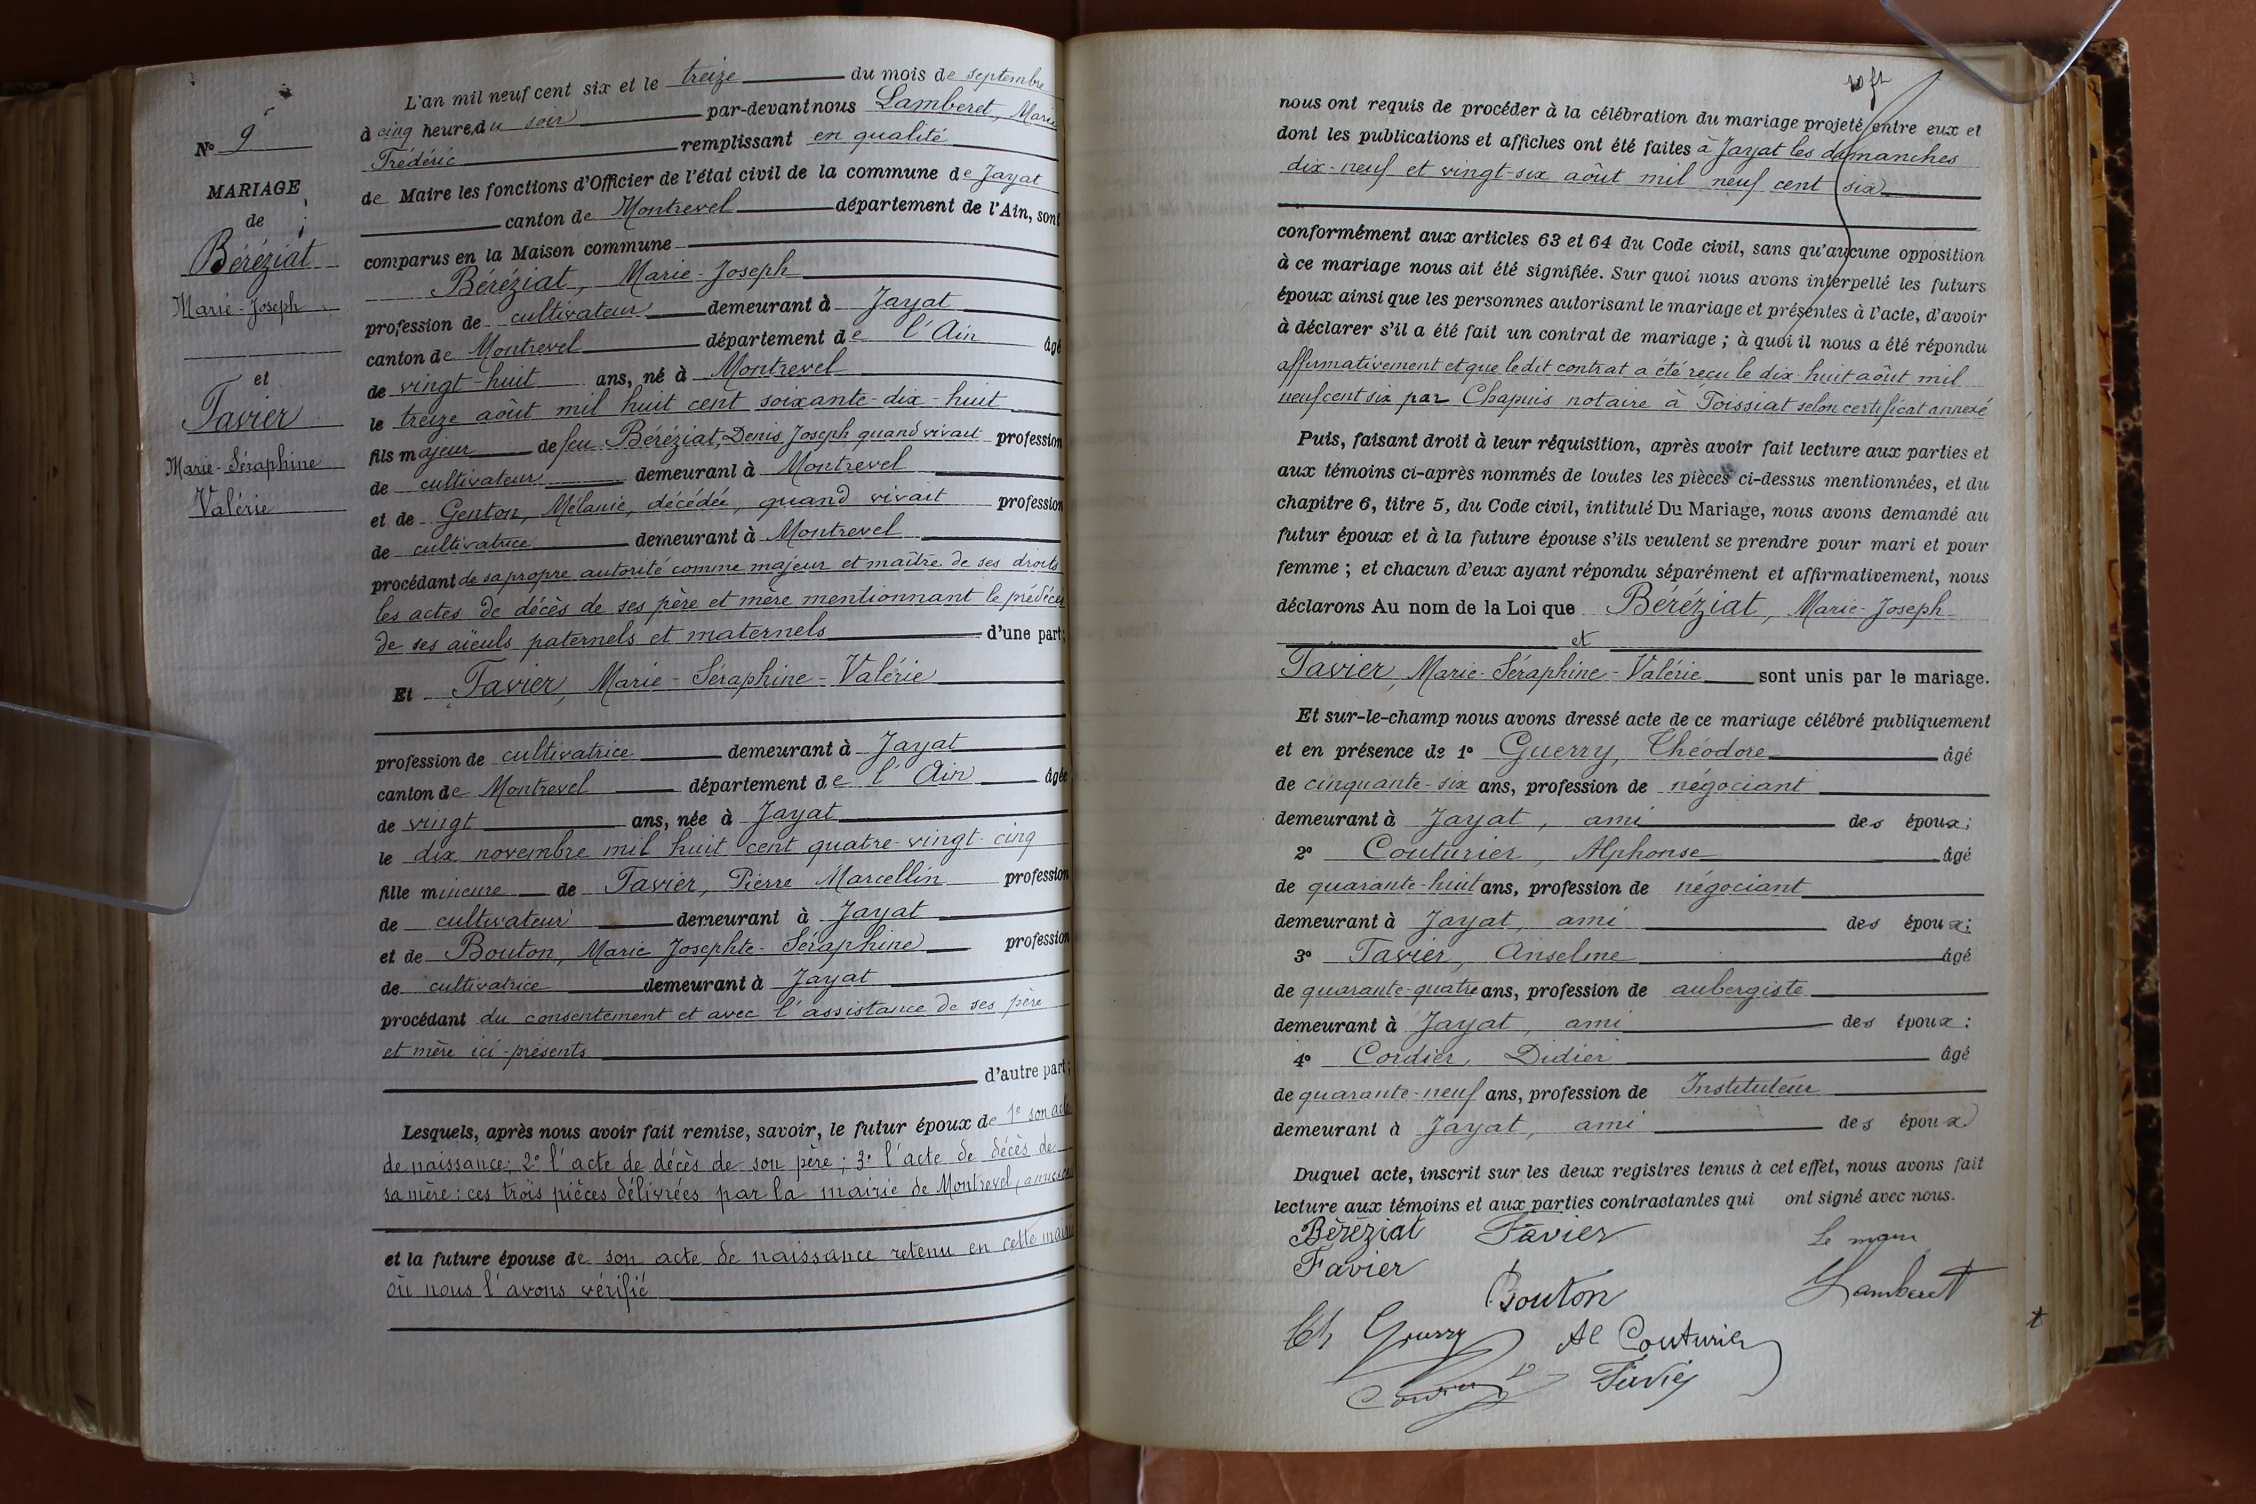 N° 9
MARIAGE
de
Béréziat
Marie-Joseph
et
Favier
Marie-Séraphine
Valérie
L'an mil neuf cent six et le treize du mois de septembre
à cinq heure du soir par-devant nous Lamberet, Marie
Frédéric remplissant en qualité
de Maire les fonctions d'Officier de l'état civil de la commune de Jayat
canton de Montrevel département de l'Ain, sont
comparus en la Maison commune
Béréziat, Marie-Joseph
profession de cultivateur demeurant à Jayat
canton de Montrevel département de l'Ain âgé
de vingt-huit ans, né à Montrevel
le treize août mil huit cent soixante-dix-huit
fils majeur de feu Béréziat, Denis, Joseph quand vivait profession
de cultivateur demeurant à Montrevel
et de Genton, Mélanie, décédée, quand vivait profession
de cultivatrice demeurant à Montrevel
procédant de sa propre autorité comme majeur et maître de ses droits
les actes de décès de ses père et mère mentionnant le prédécès
de ses aïeuls paternels et maternels d'une part;
Et Favier, Marie-Séraphine-Valérie
profession de cultivatrice demeurant à Jayat
canton de Montrevel département de l'Ain âgée
de vingt ans, née à Jayat
le dix novembre mil huit cent quatre-vingt-cinq
fille mineure de Favier, Pierre Marcellin profession
de cultivateur demeurant à Jayat
et de Bouton, Marie Josephte-Séraphine profession
de cultivatrice demeurant à Jayat
procédant du consentement et avec l'assistance de ses père
et mère ici-présents
d'autre part;
Lesquels, après nous avoir fait remise, savoir, le futur époux de 1° son acte
de naissance; 2° l'acte de décès de son père; 3° l'acte de décès de
sa mère: ces trois pièces délivrées par la mairie de Montrevel, annexées
et la future épouse de son acte de naissance retenu en cette mairie
où nous l'avons vérifié
nous ont requis de procéder à la célébration du mariage projeté entre eux et
dont les publications et affiches ont été faites à Jayat les dimanches
dix-neuf et vingt-six août mil neuf cent six
conformément aux articles 63 et 64 du Code civil, sans qu'aucune opposition
à ce mariage nous ait été signifiée. Sur quoi nous avons interpellé les futurs
époux ainsi que les personnes autorisant le mariage et présentes à l'acte, d'avoir
à déclarer s'il a été fait un contrat de mariage; à quoi il nous a été répondu
affirmativement et que le dit contrat a été reçu le dix-huit août mil
neuf cent six par Chapuis notaire à Foissiat selon certificat annexé
Puis, faisant droit à leur réquisition, après avoir fait lecture aux parties et
aux témoins ci-après nommés de toutes les pièces ci-dessus mentionnées, et du
chapitre 6, titre 5, du Code civil, intitulé Du Mariage, nous avons demandé au
futur époux et à la future épouse s'ils veulent se prendre pour mari et pour
femme; et chacun d'eux ayant répondu séparément et affirmativement, nous
déclarons Au nom de la Loi que Béréziat, Marie-Joseph
et
Favier, Marie-Séraphine-Valérie sont unis par le mariage.
Et sur-le-champ nous avons dressé acte de ce mariage célébré publiquement
et en présence de 1° Guerry, Théodore âgé
de cinquante-six ans, profession de négociant
demeurant à Jayat, ami des époux;
2° Couturier, Alphonse âgé
de quarante-huit ans, profession de négociant
demeurant à Jayat, ami des époux;
3° Favier, Anselme âgé
de quarante-quatre ans, profession de aubergiste
demeurant à Jayat, ami des époux:
4° Cordier, Didier âgé
de quarante-neuf ans, profession de Instituteur
demeurant à Jayat, ami des époux
Duquel acte, inscrit sur les deux registres tenus à cet effet, nous avons fait
lecture aux témoins et aux parties contractantes qui ont signé avec nous.
Béréziat Favier Le maire
Favier
Bouton Lamberet
Th Guerry Al Couturier
Cordier D Favier